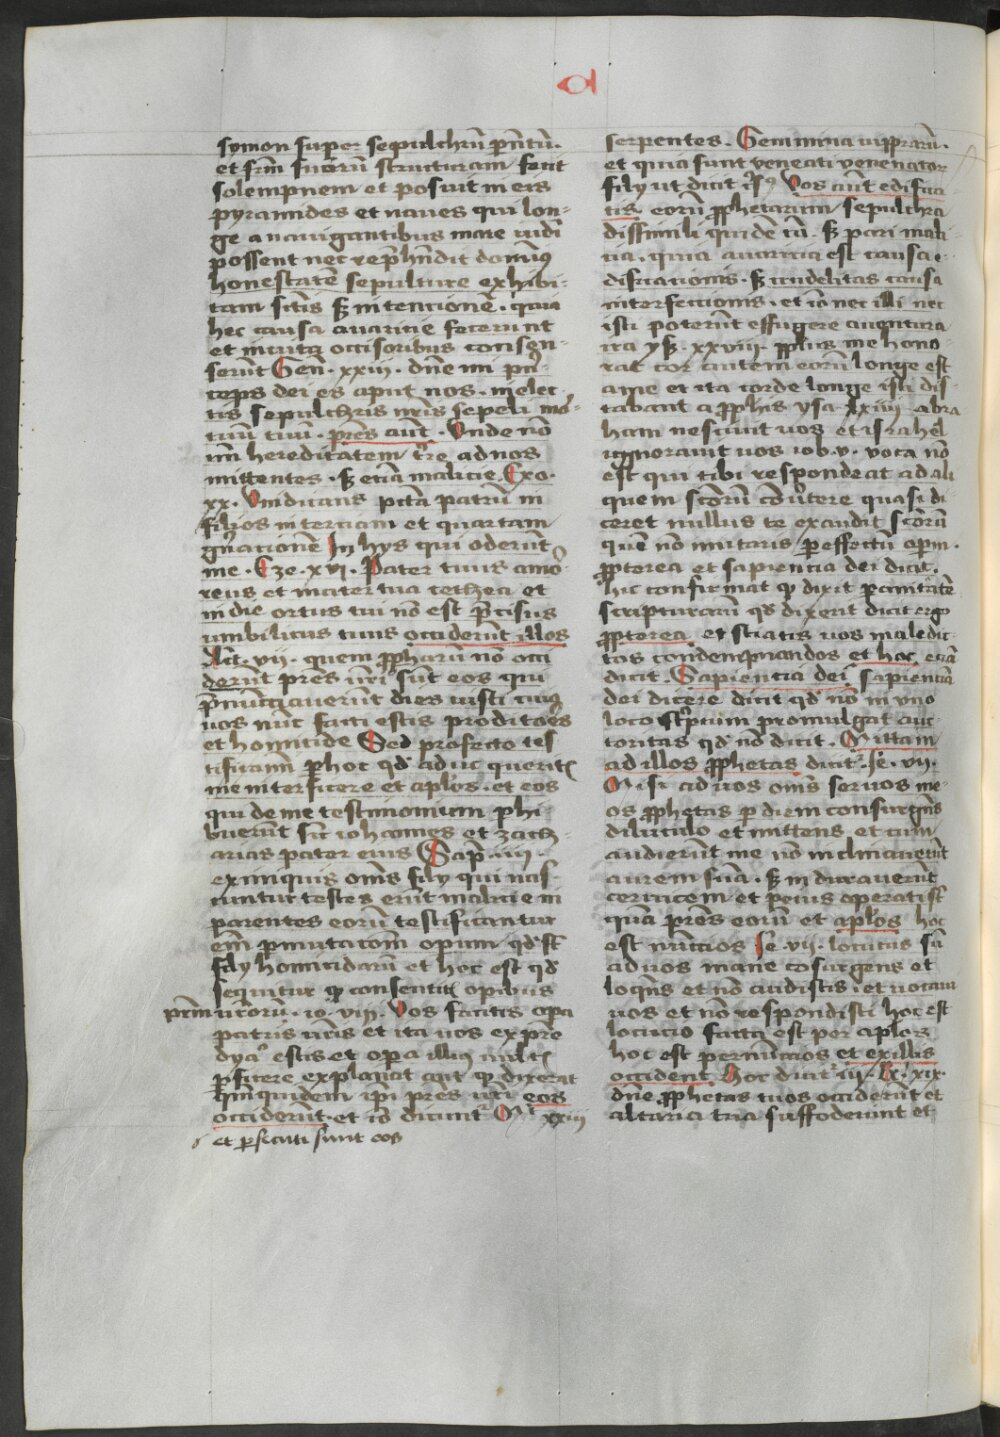 a
symon super sepulchrū pn̄tū.
et frm̄ suorū structuram fecit
solempnem et posuit in eis
pyramides et naues qui lon-
ge a nauigantibus mare uidi
possent nec rep̄hn̄dit domīꝰ
honestatē sepulture exhibi-
tam sctīs sꝫ intencionē. quia
hec causa auaricie fecerunt
et in uita occisoribus consen-
serūt Gen. xxiii. dn̄e mi pn̄-
ceps dei es aput nos. in elec-
tis sepulchris nr̄is sepeli mor-
tuū tuū. pr̄es aūt. Unde nō
im̄ hereditatem tr̄e ad nos
mittentes. sꝫ eciā malicie. Exo.
xx. Vindicans pctā patrū in
filios in terciam et quartam
gn̄acionē In hys qui oderūt
me. Eze. xvi. Pater tuus amo-
reus et mater tua cethea et
in die ortus tui nō est p̄cisus
umbilicus tuus occiderūt illos
Act. vii. quem ꝓpharū nō occi
derūt pres uri sūt eos qui
p̄nūciauerūt dies iusti cuiꝰ
uos nūc facti estis proditōes
et homicide Sed profecto tes
tificamī ꝑ hoc qd̄ aduc queritꝭ
me interficere et aplos. et eos
qui de me testimonium phi-
buerūt sic iohannes et zach-
arias pater eius Sap̄. iiii.
ex iniquis om̄s fily qui nas-
cuntur testes erūt malicie in
parentes eorū testificantur
em̄ ꝑmutacōm opum qd̄ st̄
fily homicidarū et hec est qd̄
sequitur ꝙ consentitꝭ opibus
prm̄ urorū. io. viii. Vos facitis opa
patris uris et ita uos ex prē
dya° estis et opa illiꝰ uultꝭ
ꝑficere explanat aut ꝙ dixerat
qm̄ quidem ip̄i pres uri eos
occiderūt. et iō dicunt Mt xxiii
et ꝑsecuti sunt eos
serpentes. Gemimina uipꝑarū.
et quia sunt veneati venenator
fily ut dicit Vos aūt edifica
tis eorū ꝓphetarum sepulchra
dissimili quidē tū. sꝫ pari mali
cia. quia auaricia est causa e-
dificacionis. sꝫ crudelitas causa
interfectionis. et iō nec illi nec
isti poterūt effugere auentura
ira ysa. xxviii. pplus me hono-
rat cor autem eorū longe est
a me et ita corde longe isti dis-
tabant a ꝓphis ysa lxiiii abra
ham nesciuit uos et israhel
ignorauit uos iob. v. voca nō
est qui tibi respondeat ad ali
quem sctorū cōūtere quasi di
ceret nullus te exaudit sctorū
quē nō imitaris ꝑ effectū opm.
ꝓpterea et sapiencia dei dicit.
hic confirmat ꝙ dixit ꝑ comitatē
scripturarū qd̄ dixerit dicit ergo
ꝓpterea et sciatis uos maledic-
tos condempnandos et hoc eciā
dicit. Sapiencia dei sapienciā
dei dicere dicit qd̄ nō in uno
loco sc̄ptum promulgat auc-
toritas qd̄ nō dicit. Mittam
ad illos ꝓphetas dicit᷑ Je. vii.
Misi ad uos om̄s seruos me-
os ꝓphetas ꝑ diem consurgēs
diluculo et mittens et cum
audierūt me nō inclinauerūt
aurem suā. sꝫ indurauerūt
ceruicem et peius operati sꝭ
quā pr̄es eorū et aplos hoc
est nūccios Je. vii. locutus sū
ad uos mane cōsurgens et
loqēs et nō audistis. et uocaui
uos et nō respondisti hoc est
locucio facta est per aplos
hoc est per nūcios et ex illis
occident. Hoc dicit᷑ iii. R. xix.
dn̄e ꝓphetas tuos occiderūt et
altaria tua suffoderunt et